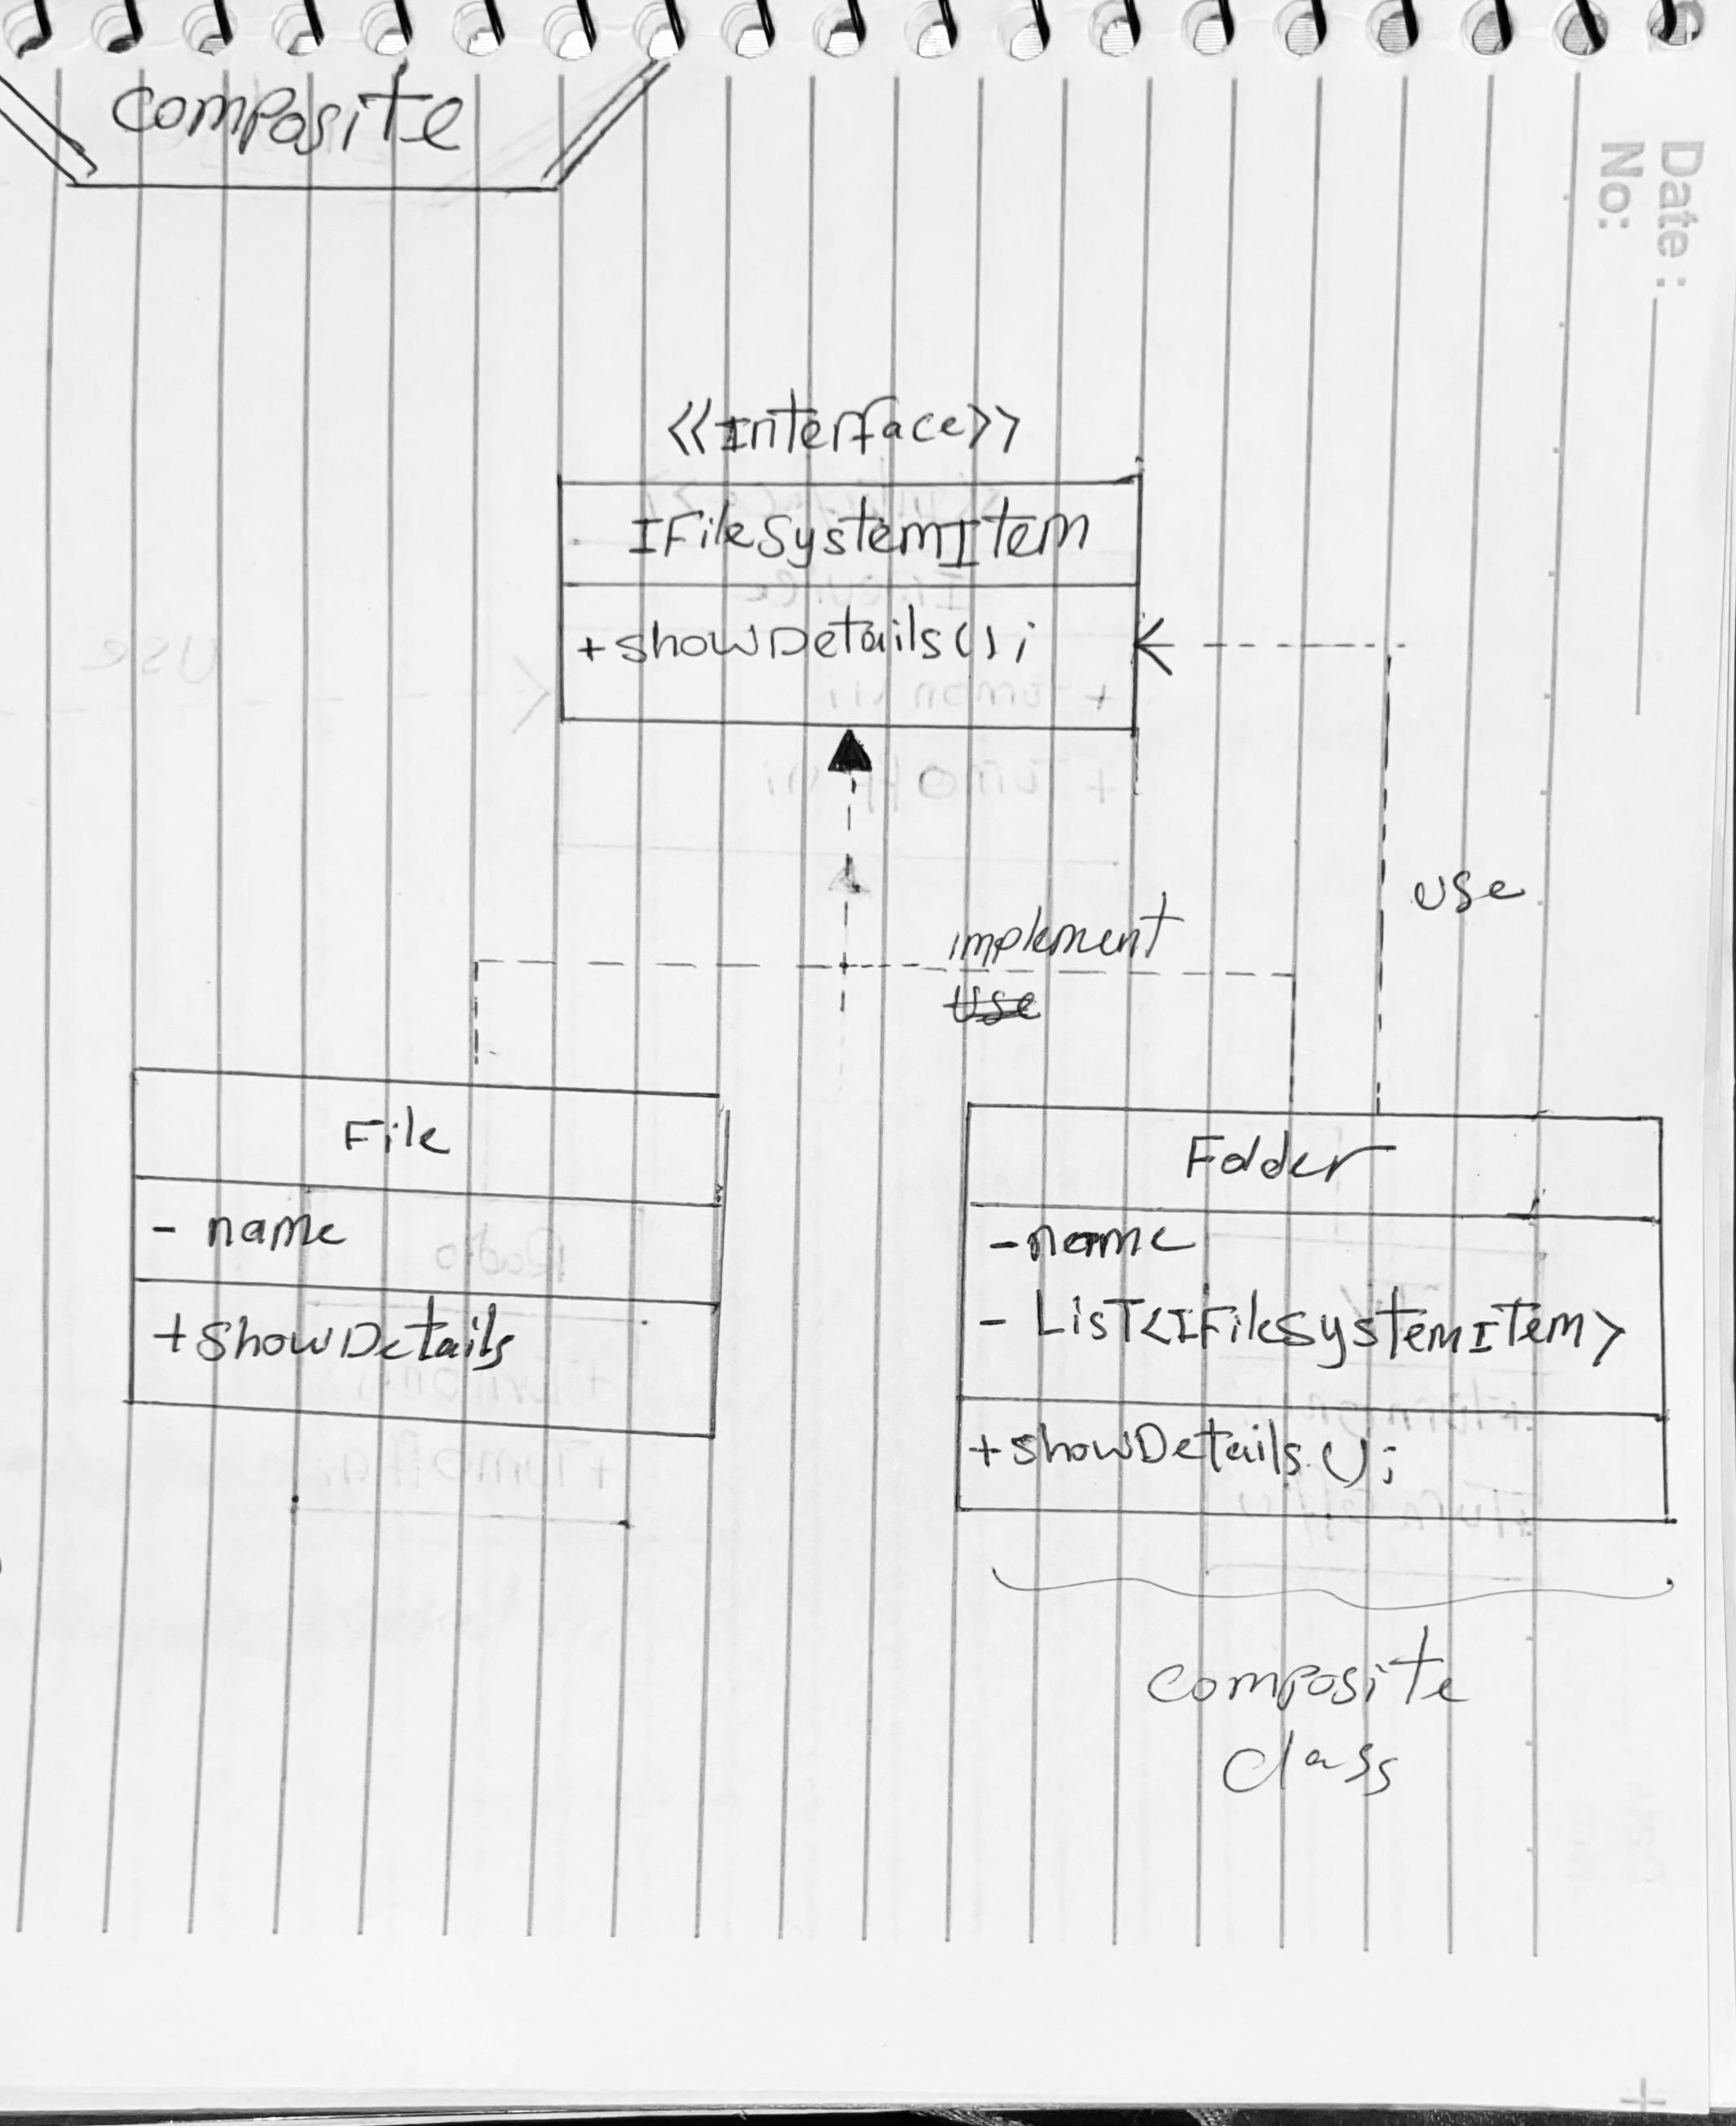 composite
Date :
No:
<<Interface>>
IFileSystemItem
+showDetails();
use
implement
use
File
- name
+showDetails
Folder
-name
- List<IFileSystemItem>
+showDetails();
composite
class